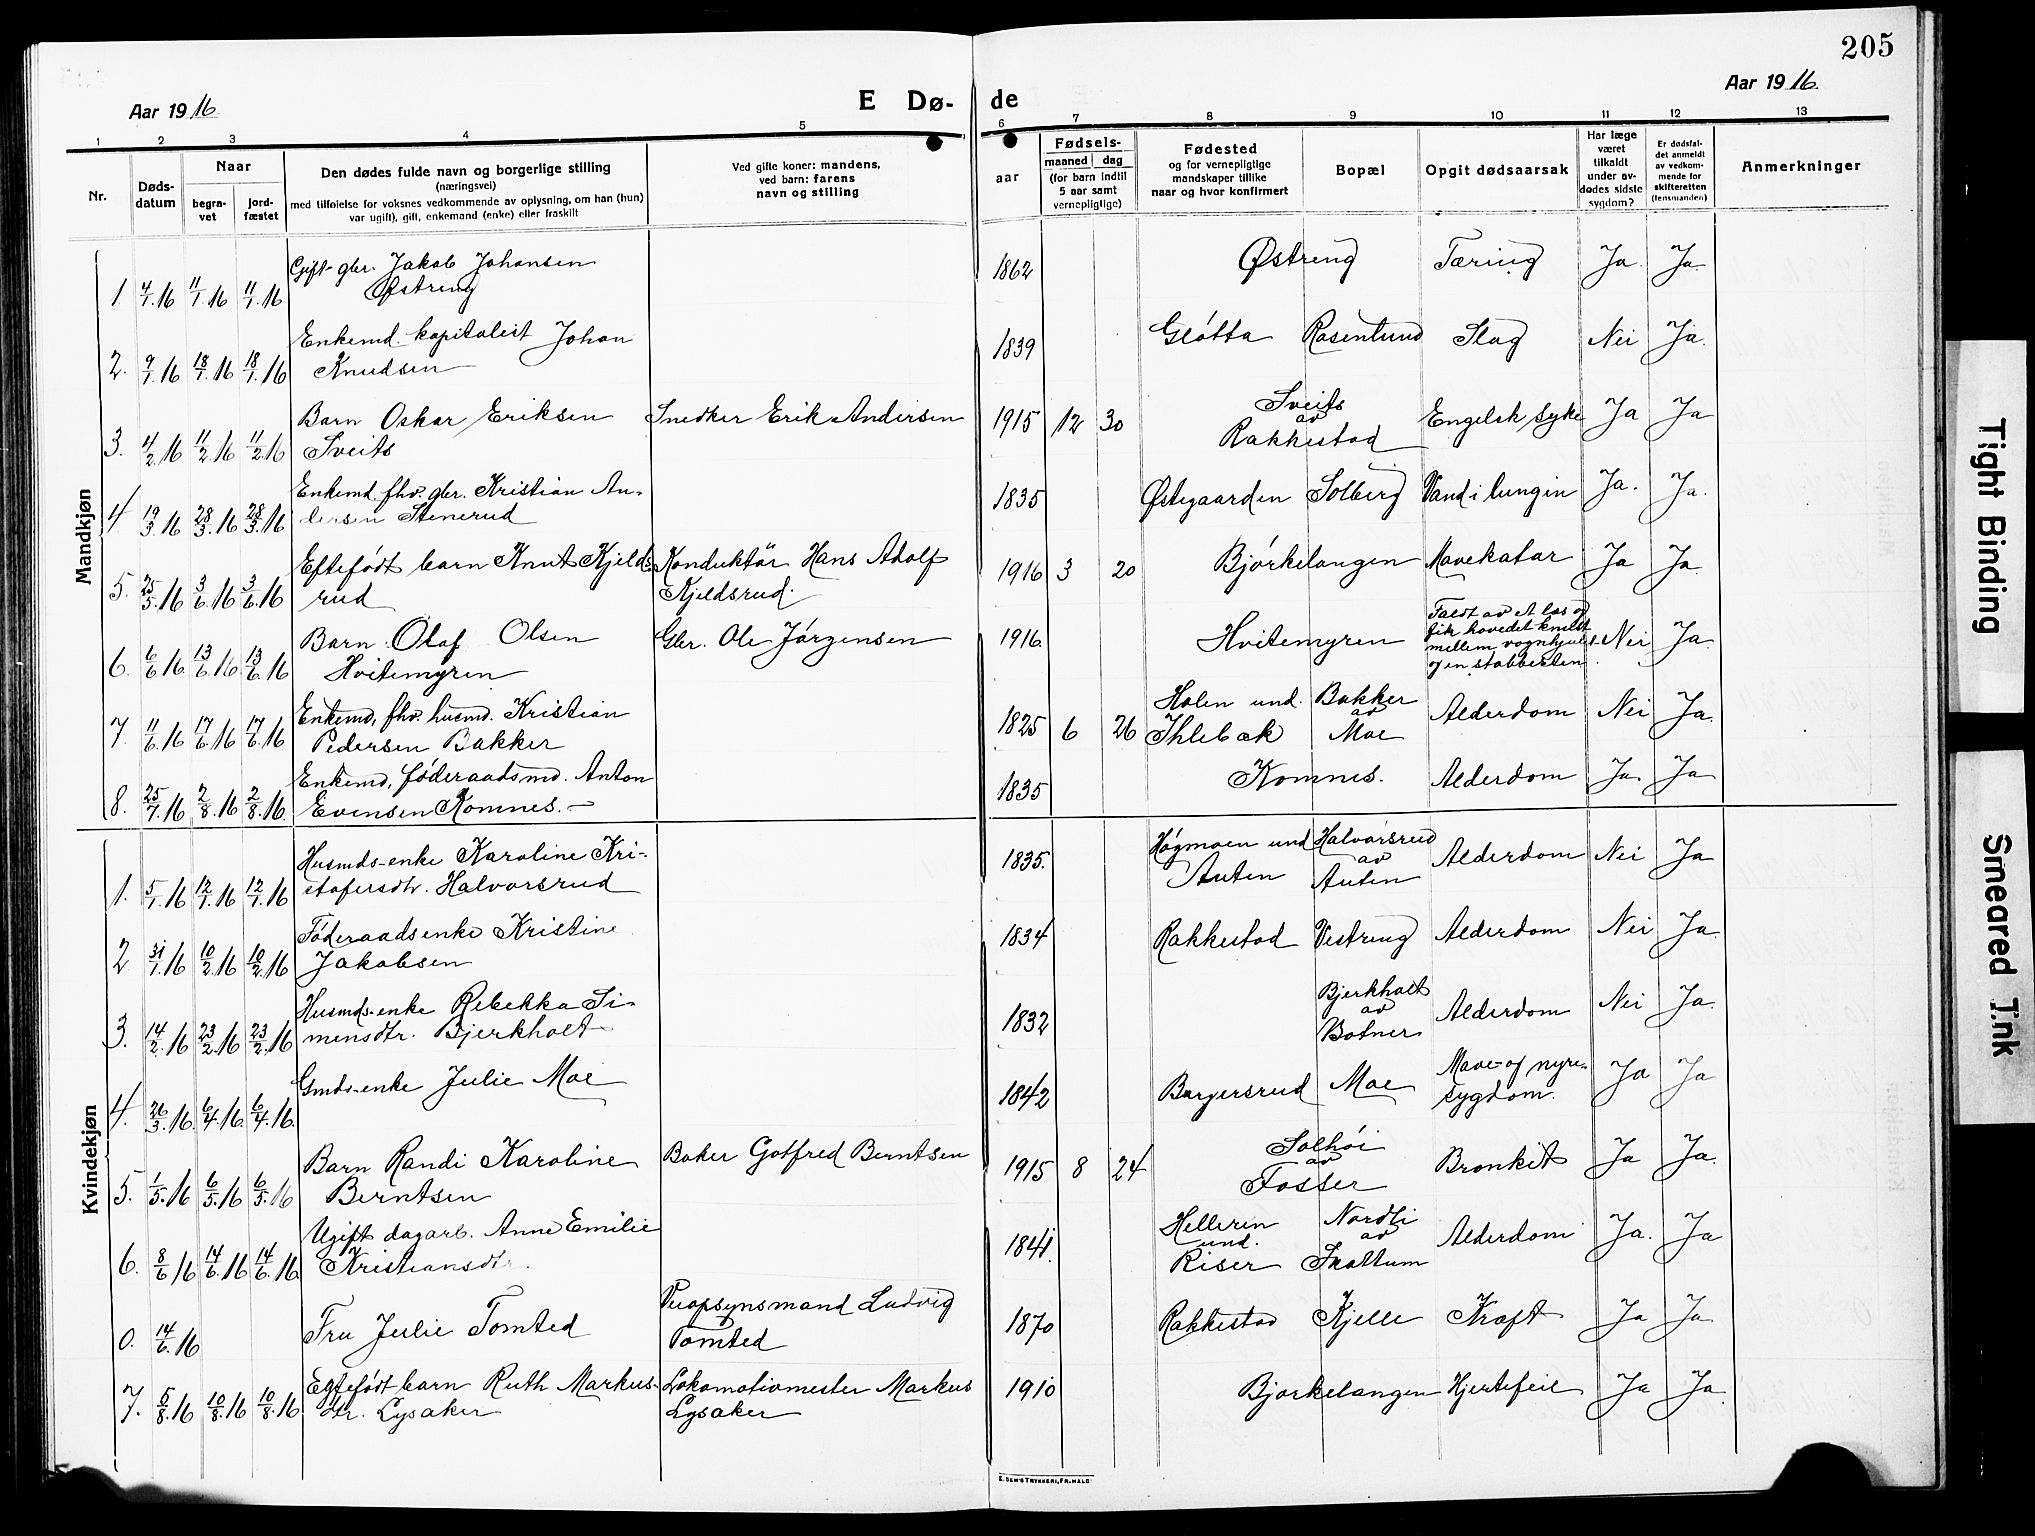 205
Aar 1916.
E Dø-
de
Aar 1916.
1 2 3 4 5 6 7 8 9 10 11 12 13
Nr.
Døds-
datum
Naar
begra-
vet
jord-
fæstet
Den dødes fulde navn og borgerlige stilling
(næringsvei)
med tilføielse for voksnes vedkommende av oplysning, om han (hun)
var ugift), gift, enkemand (enke) eller fraskilt
Ved gifte koner: mandens,
ved barn: farens
navn og stilling
aar
Fødsels-
maaned dag
(for barn indtil
5 aar samt
vernepligtige)
Fødested
og for vernepligtige
mandskaper tillike
naar og hvor konfirmert
Bopæl
Opgit dødsaarsak
Har læge
været
tilkaldt
under av-
dødes sidste
sygdom?
Er dødsfal-
det anmeldt
av vedkom-
mende for
skifteretten
(lensmanden)
Anmerkninger
Mandkjøn
Gift gbr. Jakob Johansen
1 4/1.16 11/1.16 11/1.16 Østreng 1862 Østreng Tæring Ja Ja
Enkemd. kapitalist Johan
2. 9/1.16 18/1.16 18/1.16 Knudsen 1839 Gløtta Rosenlund Slag Nei Ja.
Barn Oskar Eriksen Snedker Erik Andersen
3. 4/2.16 11/2.16 11/2.16 Sveits 1915 12 30 Sveits av Rakkestad Engelsk syke Ja Ja
Enkemd. fhv. gbr. Kristian An-
4 19/3.16 28/3.16 28/3.16 dersen Stenerud 1835 Østegaarden Solberg Vand i lungin Ja. Ja.
Eftefødt barn Knut Kjelds- Konduktör Hans Adolf
5. 25/5.16 3/6.16 3/6.16 rud Kjeldsrud. 1916 3 20 Bjørkelangen Mavekatar Ja Ja
Barn Olaf Olsen Gbr. Ole Jørgensen
6. 6/6.16 13/6.16 13/6.16 Hvitemyren 1916. Hvitemyren Faldt av et las og
fik hovedet knust
mellem vognhjulet
og en stabbesten. Nei Ja.
Enkemd, fhv. husmd. Kristian
7. 11/6.16 17/6.16 17/6.16 Pedersen Bakker 1825 6 26 Holen und. Ihlebæk Bakker av Moe Alderdom Nei Ja.
Enkemd, føderaadsmd. Anton
8. 25/7.16 2/8.16 2/8.16 Evensen Komnes. 1835 Komnes. Alderdom Ja. Ja
Kvindekjøn
Husmds-enke Karoline Kri-
1. 5/1.16 12/1.16 12/1.16 stofersdtr. Halvorsrud 1835. Høgmoen und Auten Halvorsrud av Auten Alderdom Nei Ja
Føderaadsenke Kristine
2 31/1.16 10/2.16 10/2.16 Jakobsen 1834 Rakkestad Vestreng Alderdom Nei Ja
Husmds-enke Rebekka Si-
3. 14/2.16 23/2.16 23/2.16 mensdtr. Bjerkholt 1832 Bjerkholt av Botner Alderdom Nei Ja.
Gmds-enke Julie Moe
4. 26/3.16. 6/4.16 6/4.16. 1842 Borgersrud Moe Mave- og nyre-
sygdom. Ja Ja
Barn Randi Karoline Baker Gotfred Berntsen
5. 1/5.16 6/5.16 6/5.16 Berntsen 1915 8 24 Solhøi av Fosser Bronkit Ja Ja.
Ugift dagarb. Anne Emilie
6. 8/6 16 14/6.16 14/6.16 Kristiansdtr. 1841. Helleren und. Riser Nordli av Skattum Alderdom Ja. Ja
Veiopsynsmand Ludvig
0. 14/6.16 Fru Julie Tomted Tomted 1870 Rakkestad Kjelle Kræft Ja Ja
Egtefødt barn Ruth Markus- Lokomotivmester Markus
7. 5/8.16 10/8.16 10/8.16. dtr. Lysaker Lysaker 1910 Bjørkelangen Hjertefeil Ja Ja
E. SEM'S TRYKKERI, FR.HALD
Tight Binding
Smeared Ink